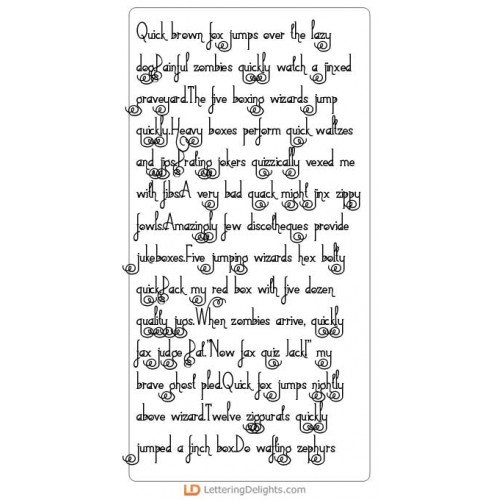 Quick brown fox jumps over the lazy
dog.Painful zombies quickly watch a jinxed
graveyard.The five boxing wizards jump
quickly.Heavy boxes perform quick waltzes
and jigs.Prating jokers quizzically vexed me
with fibs.A very bad quack might jinx zippy
fowls.Amazingly few discotheques provide
jukeboxes.Five jumping wizards hex bolty
quick.Pack my red box with five dozen
quality jugs."When zombies arrive, quickly
fax judge Pat."Now fax quiz Jack!" my
brave ghost pled.Quick fox jumps nightly
above wizard.Twelve ziggurats quickly
jumped a finch box.De wafting zephyrs
LD LetteringDelights.com